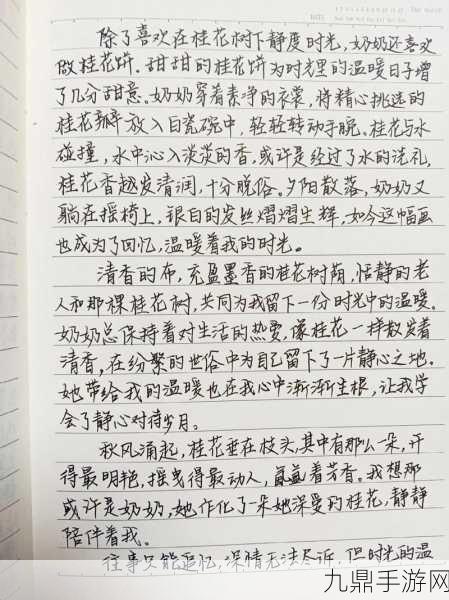 除了喜欢在桂花树下静度时光,奶奶还喜欢
做桂花饼。甜甜的桂花饼为时光里的温暖日子增
了几分甜意。奶奶穿着素净的衣裳,将精心挑选的
桂花瓣放入白瓷碗中,轻轻转动手腕。桂花与水
碰撞,水中沁入淡淡的香,或许是经过了水的洗礼,
桂花香越发清润,十分脱俗。夕阳散落,奶奶又
躺在摇椅上,银白的发丝熠熠生辉,如今这幅画
也成为了回忆,温暖着我的时光。
清香的布,充盈墨香的桂花树荫,恬静的老
人和那棵桂花树,共同为我留下一份时光中的温暖。
奶奶总保持着对生活的热爱,像桂花一样散发着
清香,在纷繁的世俗中为自己留下了一片静心之地。
她带给我的温暖也在我心中渐渐生根,让我学
会了静心对待岁月。
秋风涌起,桂花垂在枝头,其中有那么一朵,开
得最明艳,摇曳得最动人,氤氲着芳香。我想那
或许是奶奶,她作化了一朵她深爱的桂花,静静
陪伴着我。
往事只能追忆,深情无法尽诉,但时光的温
九鼎手游网